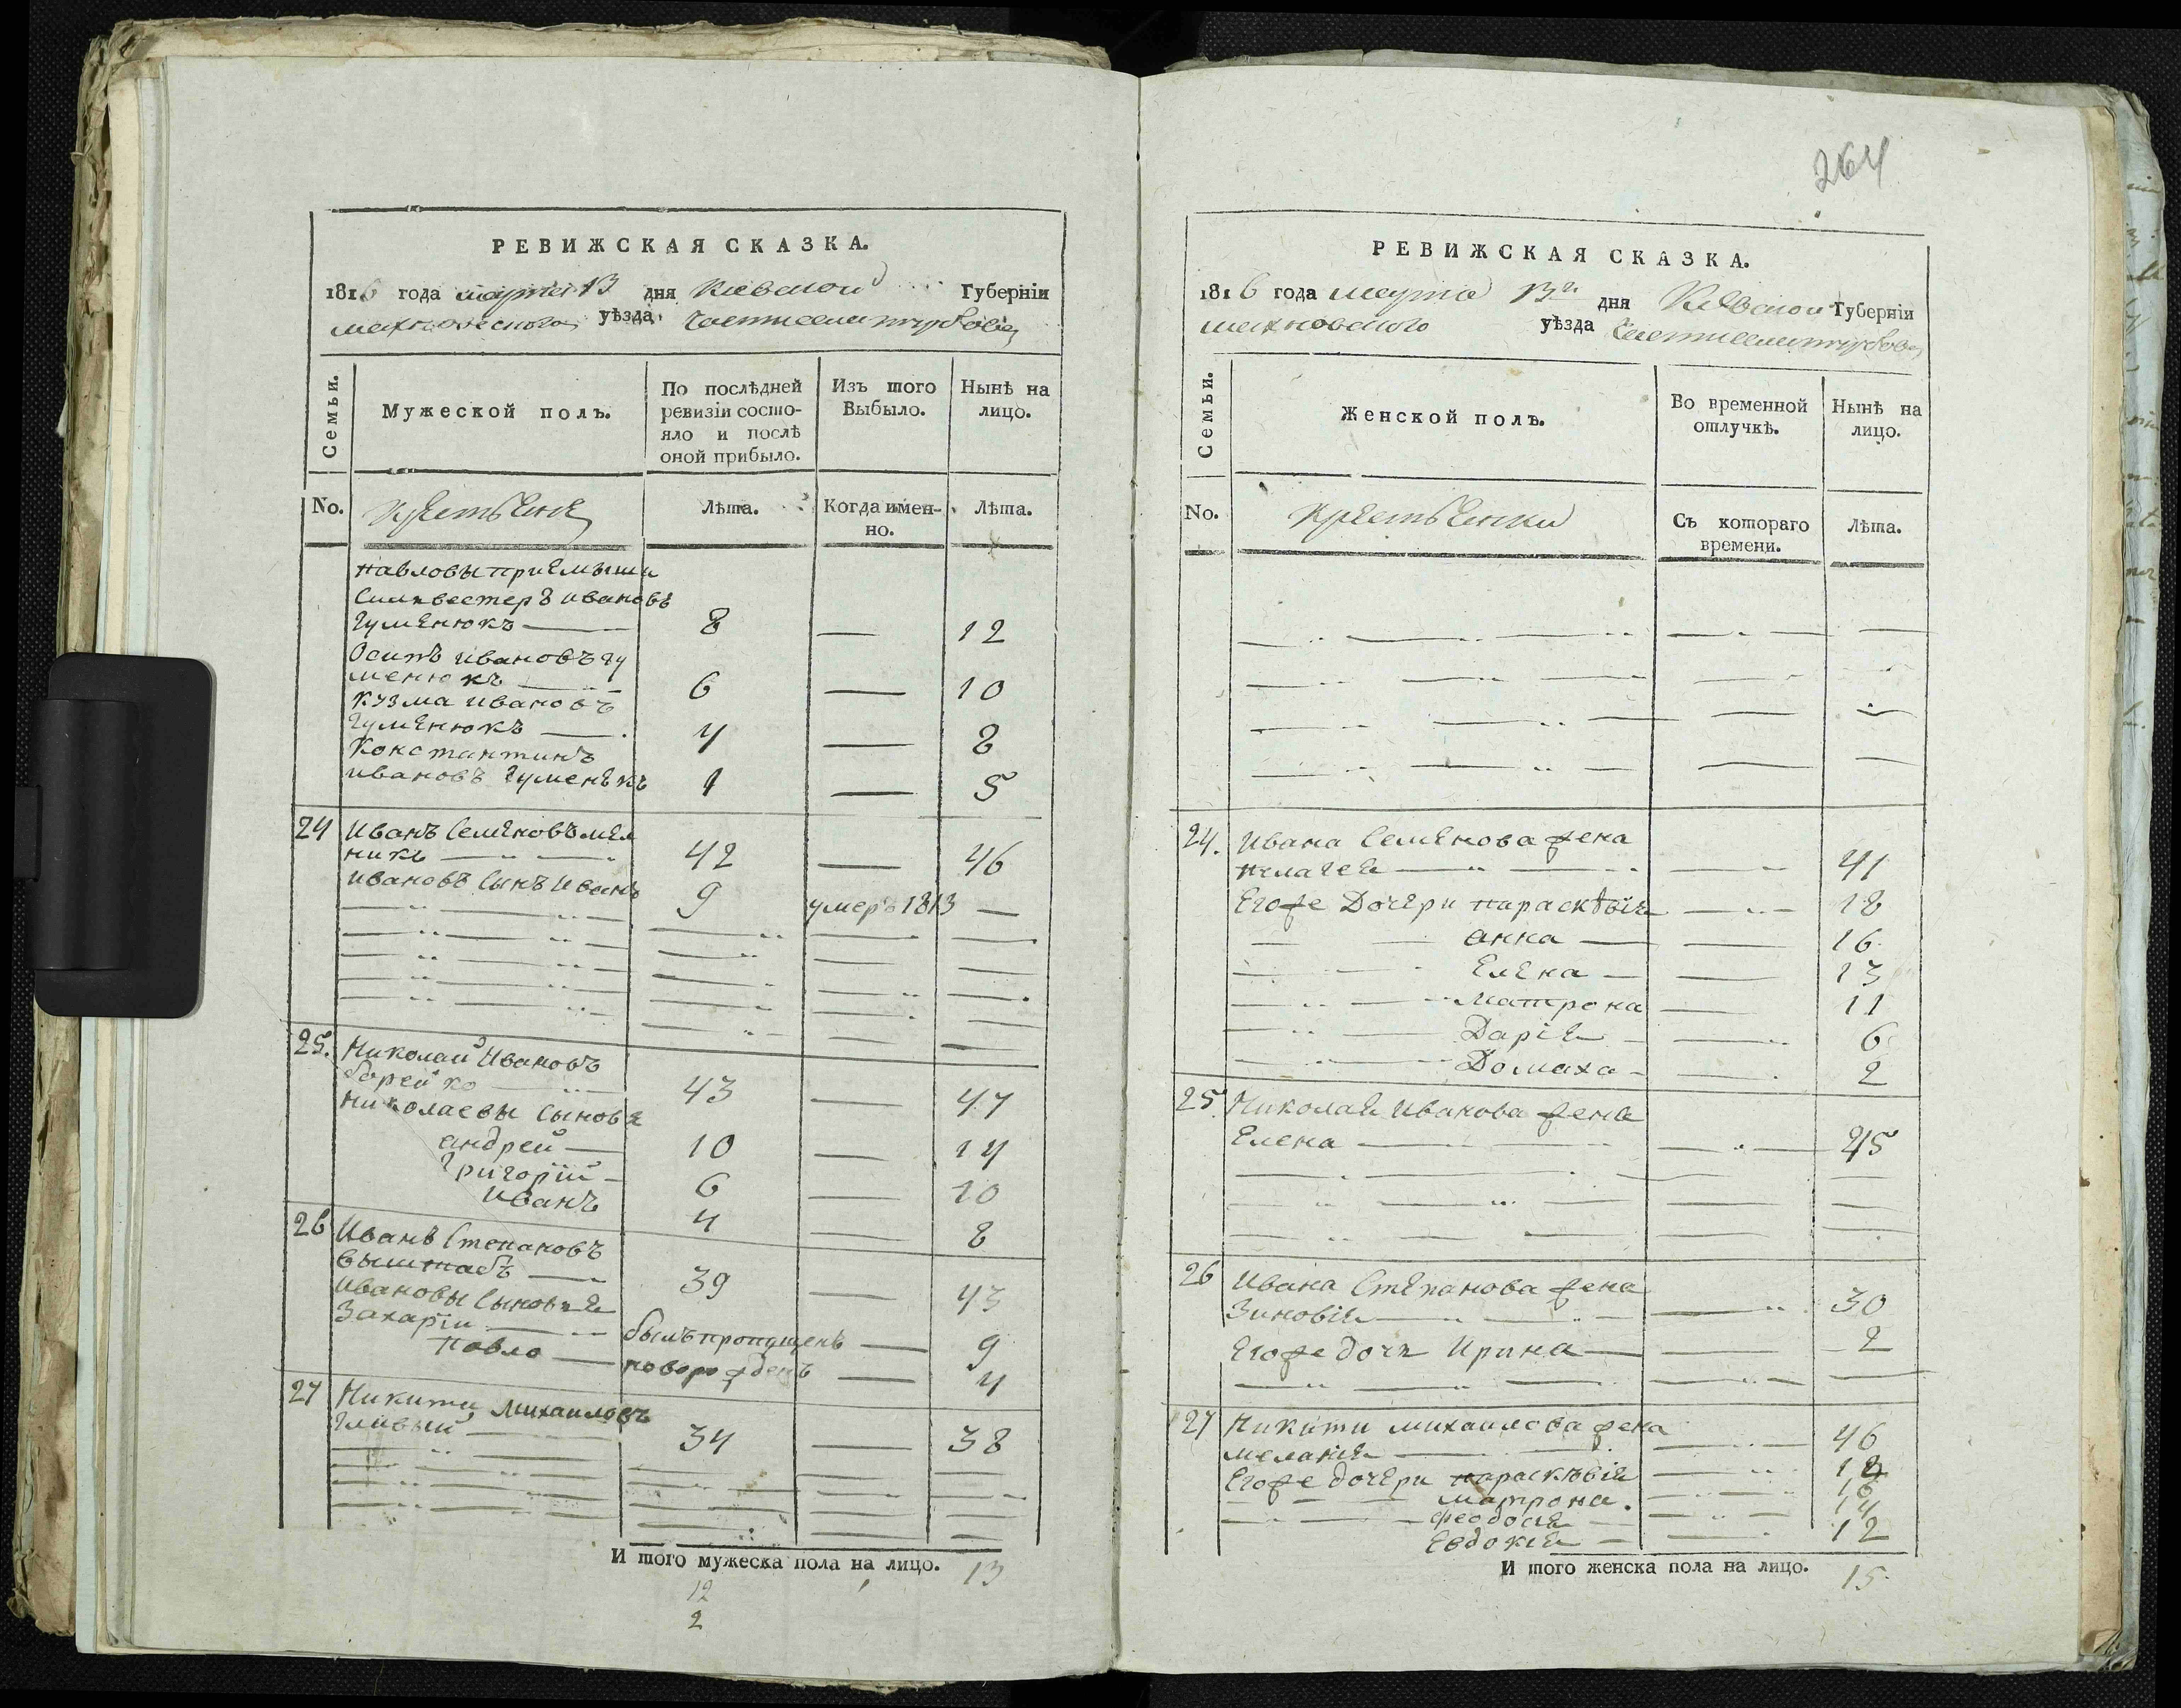 РЕВИЖСКАЯ СКАЗКА.
1816 года марта 13 дня Киевской Губернїи
махновского уѣзда
Семьи.
Мужеской полъ.
По послѣдней ревизїи состояло и послѣ оной прибыло.
Изъ того Выбыло.
Нынѣ на лицо.
No. крестьяне Лѣта. Когда именно. Лѣта.
Павловы приемыши
Силвестеръ ивановъ
гуменюкъ 8 — 12
Осипъ ивановъ гу
менюкъ 6 — 10
кузма ивановъ
гуменюкъ 4 — 8
Константинъ
ивановъ гуменюкъ 1 — 5
24 Иванъ Семеновъ мел
никъ 42 — 46
ивановъ Сынъ иванъ 9 умеръ 1813 —
25. Николай Ивановъ
борейко 43 — 47
николаевы Сыновя
андрей 10 — 14
григорїй 6 — 10
иванъ 4 — 8
26 Иванъ Степановъ
39 — 43
ивановы Сыновя
Захарїи былъ пропущенъ — 9
Павло новорожденъ — 4
27 Никити Михаиловъ
34 — 38
И того мужеска пола на лицо. 13
12
2
264
РЕВИЖСКАЯ СКАЗКА.
1816 года марта 13го дня Киевской Губернїи
махновского уѣзда
Семьи.
Женской полъ.
Во временной отлучкѣ.
Нынѣ на лицо.
No. крестьянки Съ котораго времени. Лѣта.
24. Ивана Семенова жена
пелагея 41
Егоже Дочери параскѣвїя 18
анна 16
Елена 13
Матрона 11
Дарїя 6
Домаха 2
25. Николая Иванова жена
Елена 45
26 Ивана Степанова жена
Зиновїя 30
Егоже дочь Ирина 2
27 Никити михаилова жена
меланїя 46
Егоже дочери параскѣвїя
матрона. 16
феодосїя 14
Евдокїя 12
И того женска пола на лицо. 15